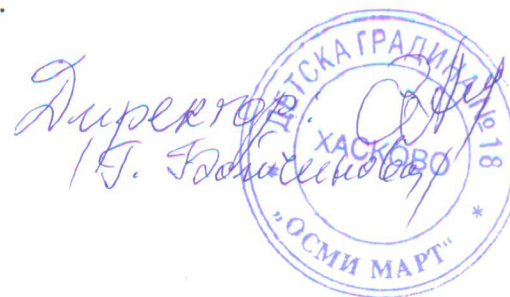 Директор:
/Г.
ДЕТСКА ГРАДИНА № 18
ХАСКОВО
* „ОСМИ МАРТ“ *